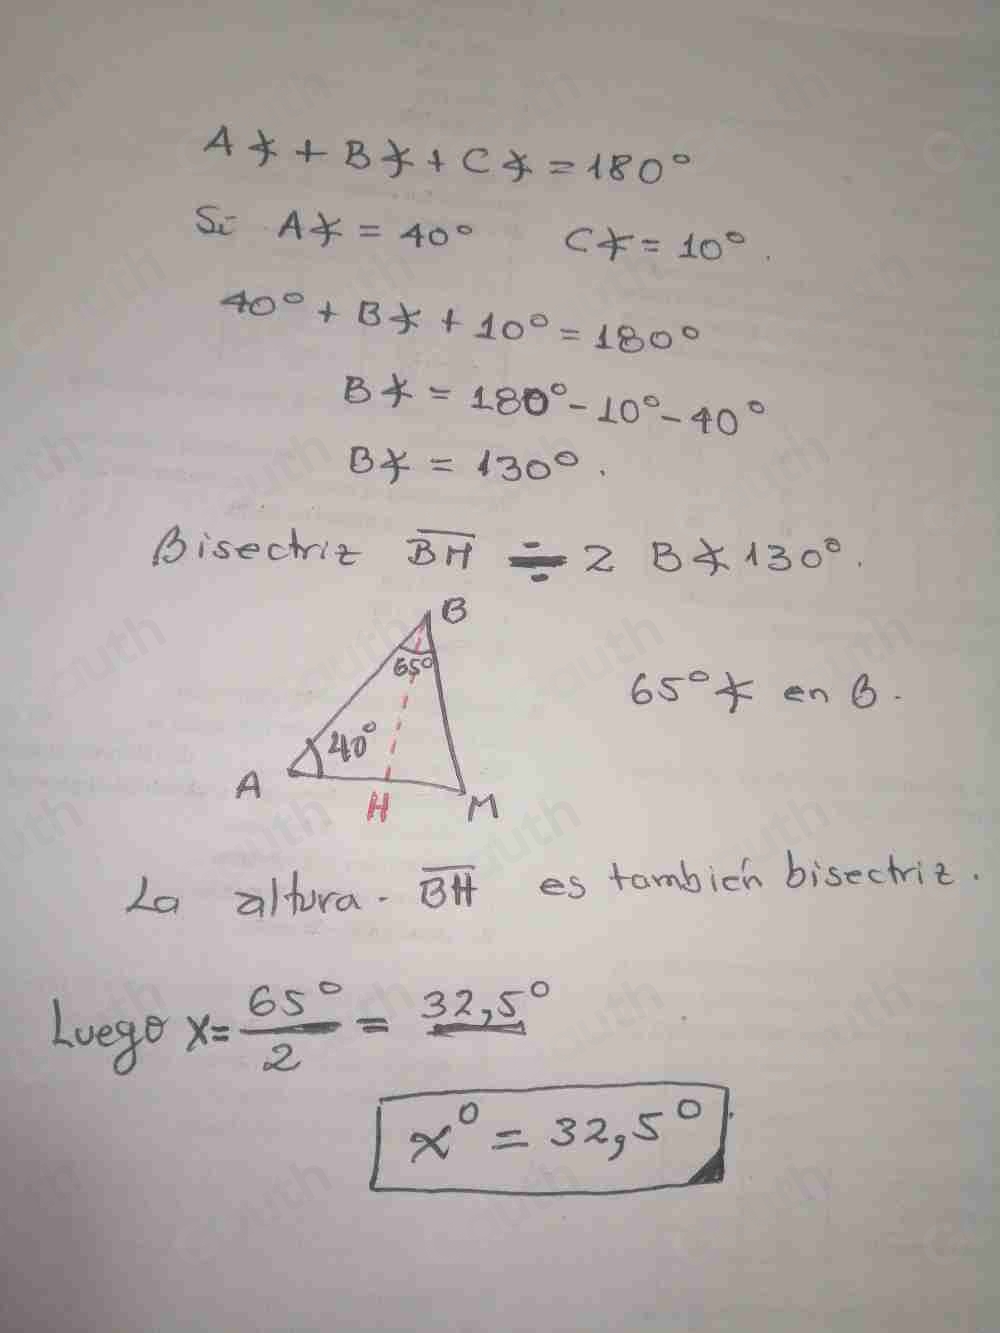 A∡ + B∡ + C∡ = 180°
Si A∡ = 40° C∡ = 10°.
40° + B∡ + 10° = 180°
B∡ = 180° - 10° - 40°
B∡ = 130°.
Bisectriz BH ÷ 2 B∡ 130°.
B
65°
65°∡ en B.
40°
A
H
M
La altura. BH es también bisectriz.
Luego x = 65°/2 = 32,5°
x° = 32,5°